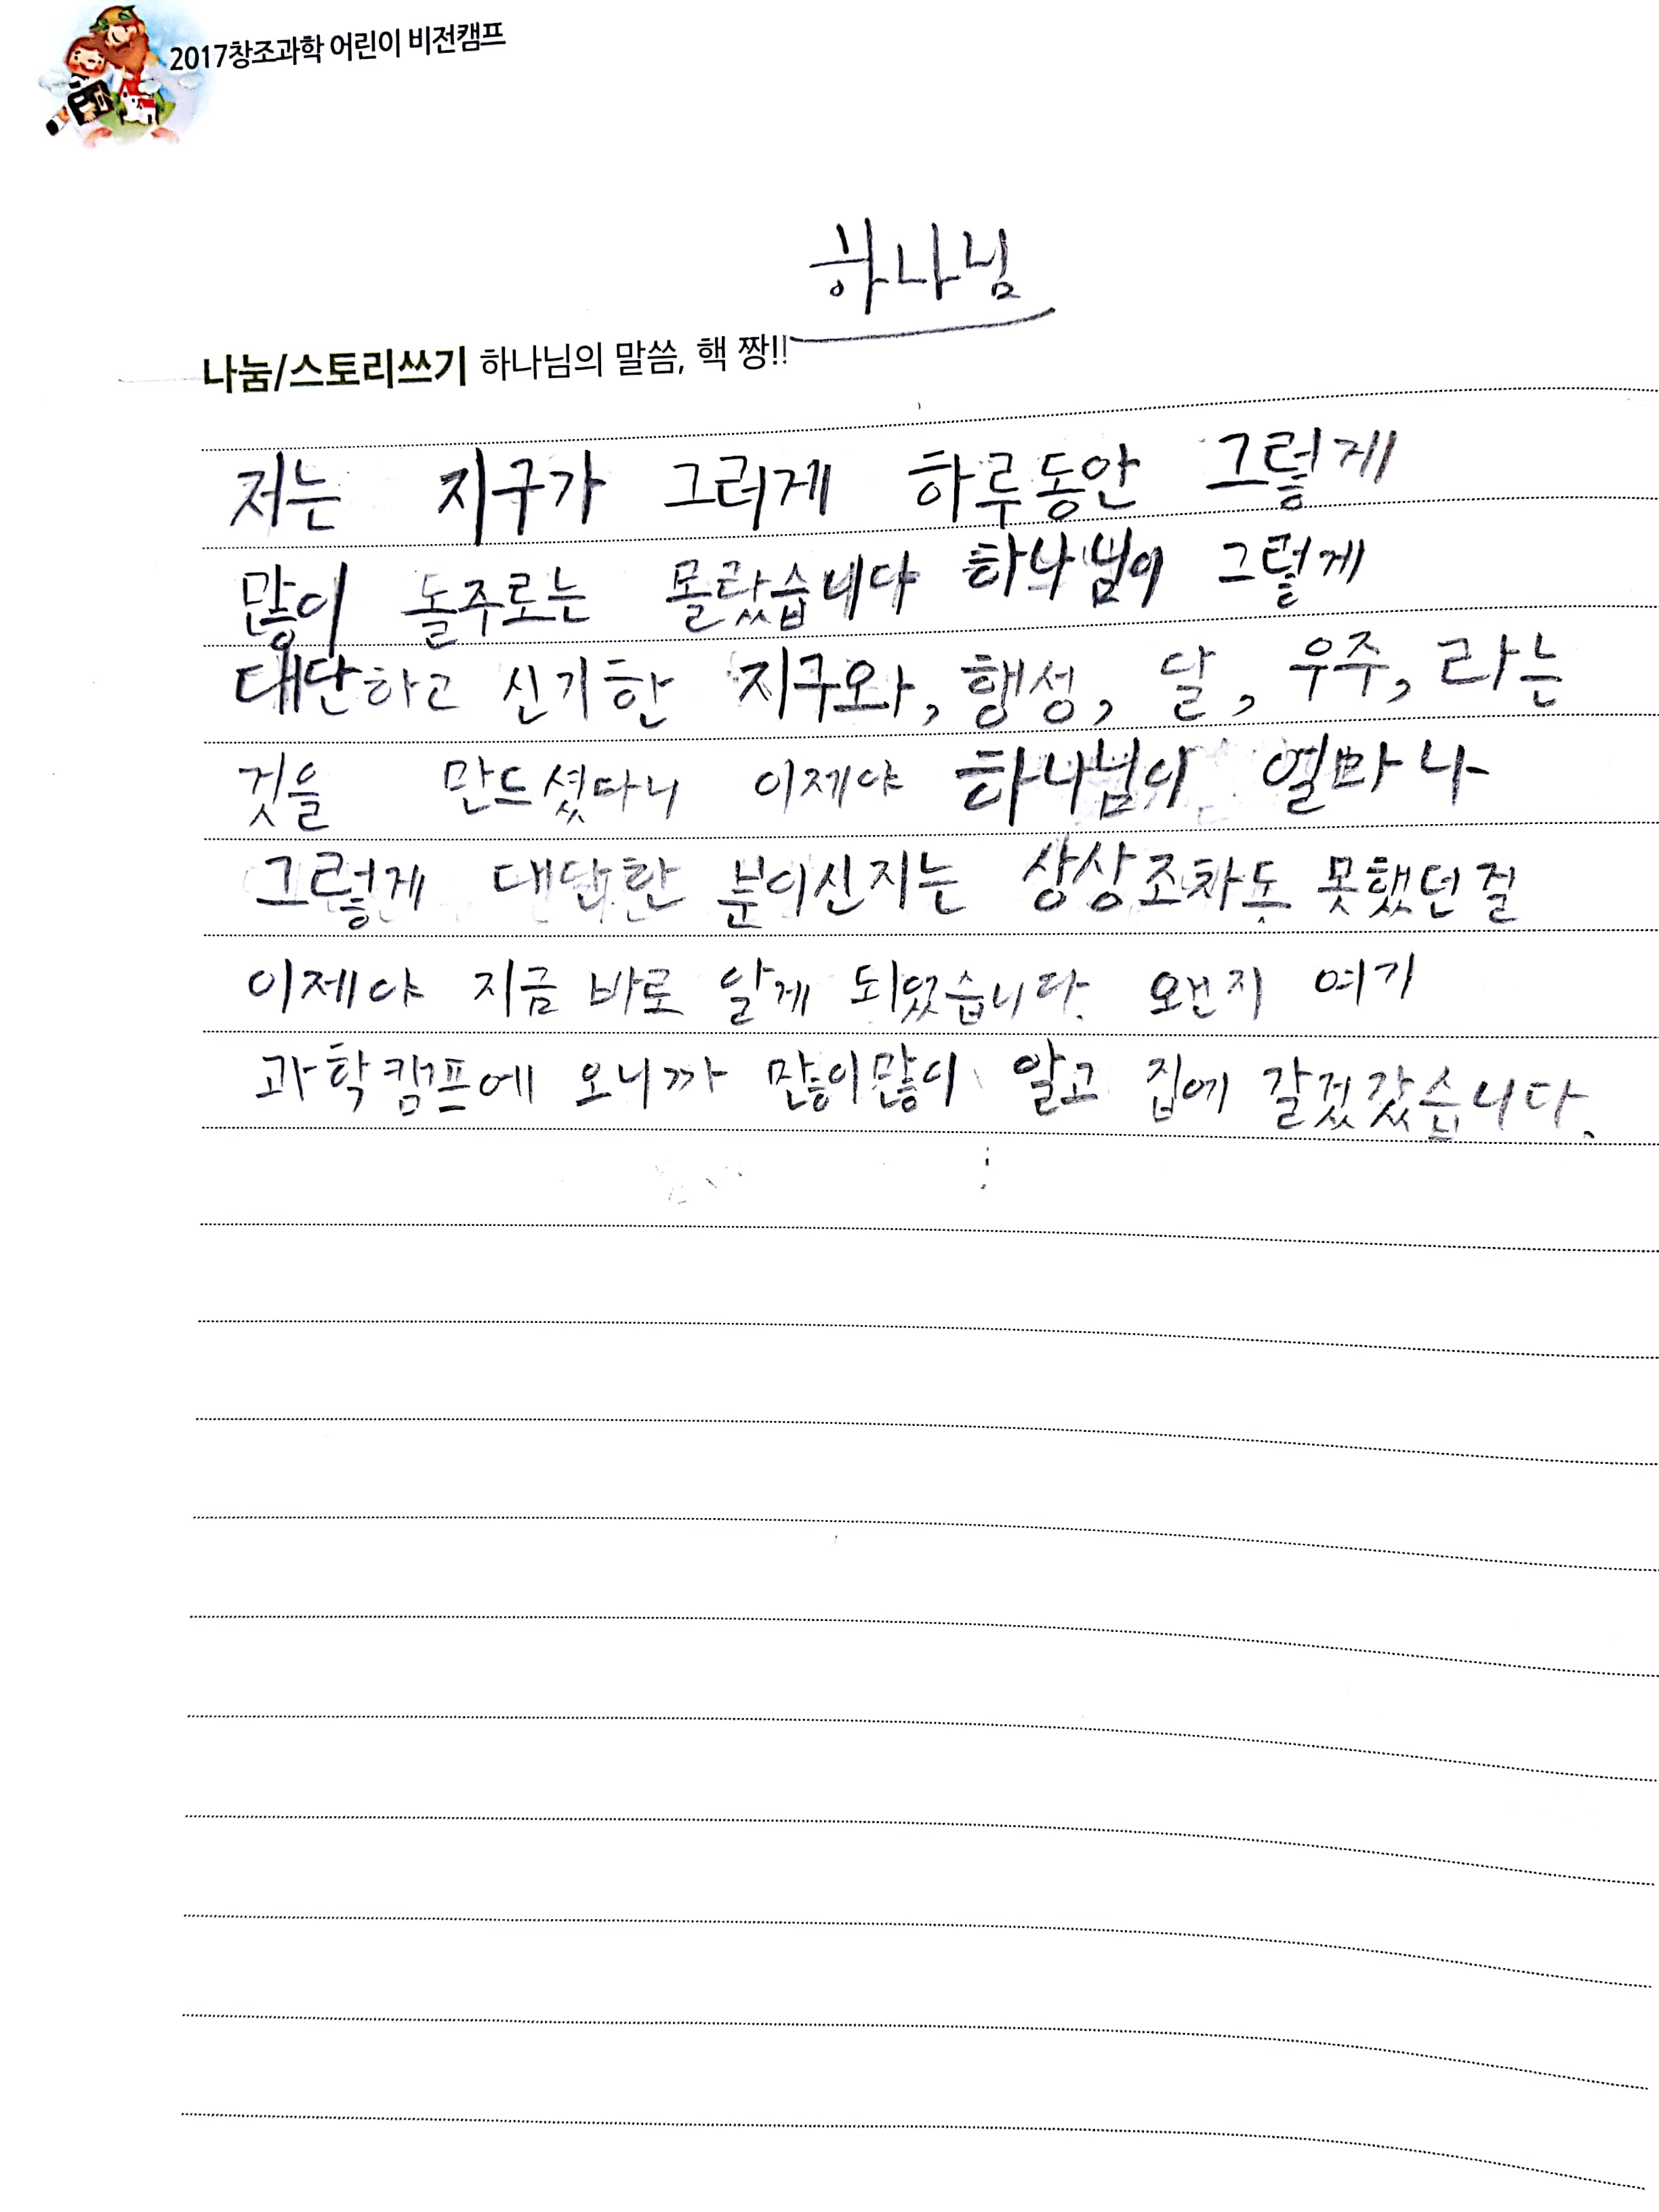 2017창조과학 어린이 비전캠프
하나님
나눔/스토리쓰기 하나님의 말씀, 핵 짱!!
저는 지구가 그러게 하루동안 그렇게
많이 돌주로는 몰랐습니다 하나님이 그렇게
대단하고 신기한 지구와, 행성, 달, 우주, 라는
것을 만드셨다니 이제야 하나님이 얼마나
그렇게 대단한 분이신지는 상상조차도 못했던걸
이제야 지금 바로 알게 되었습니다. 왠지 여기
과학캠프에 오니까 많이많이 알고 집에 갈겄갔습니다.